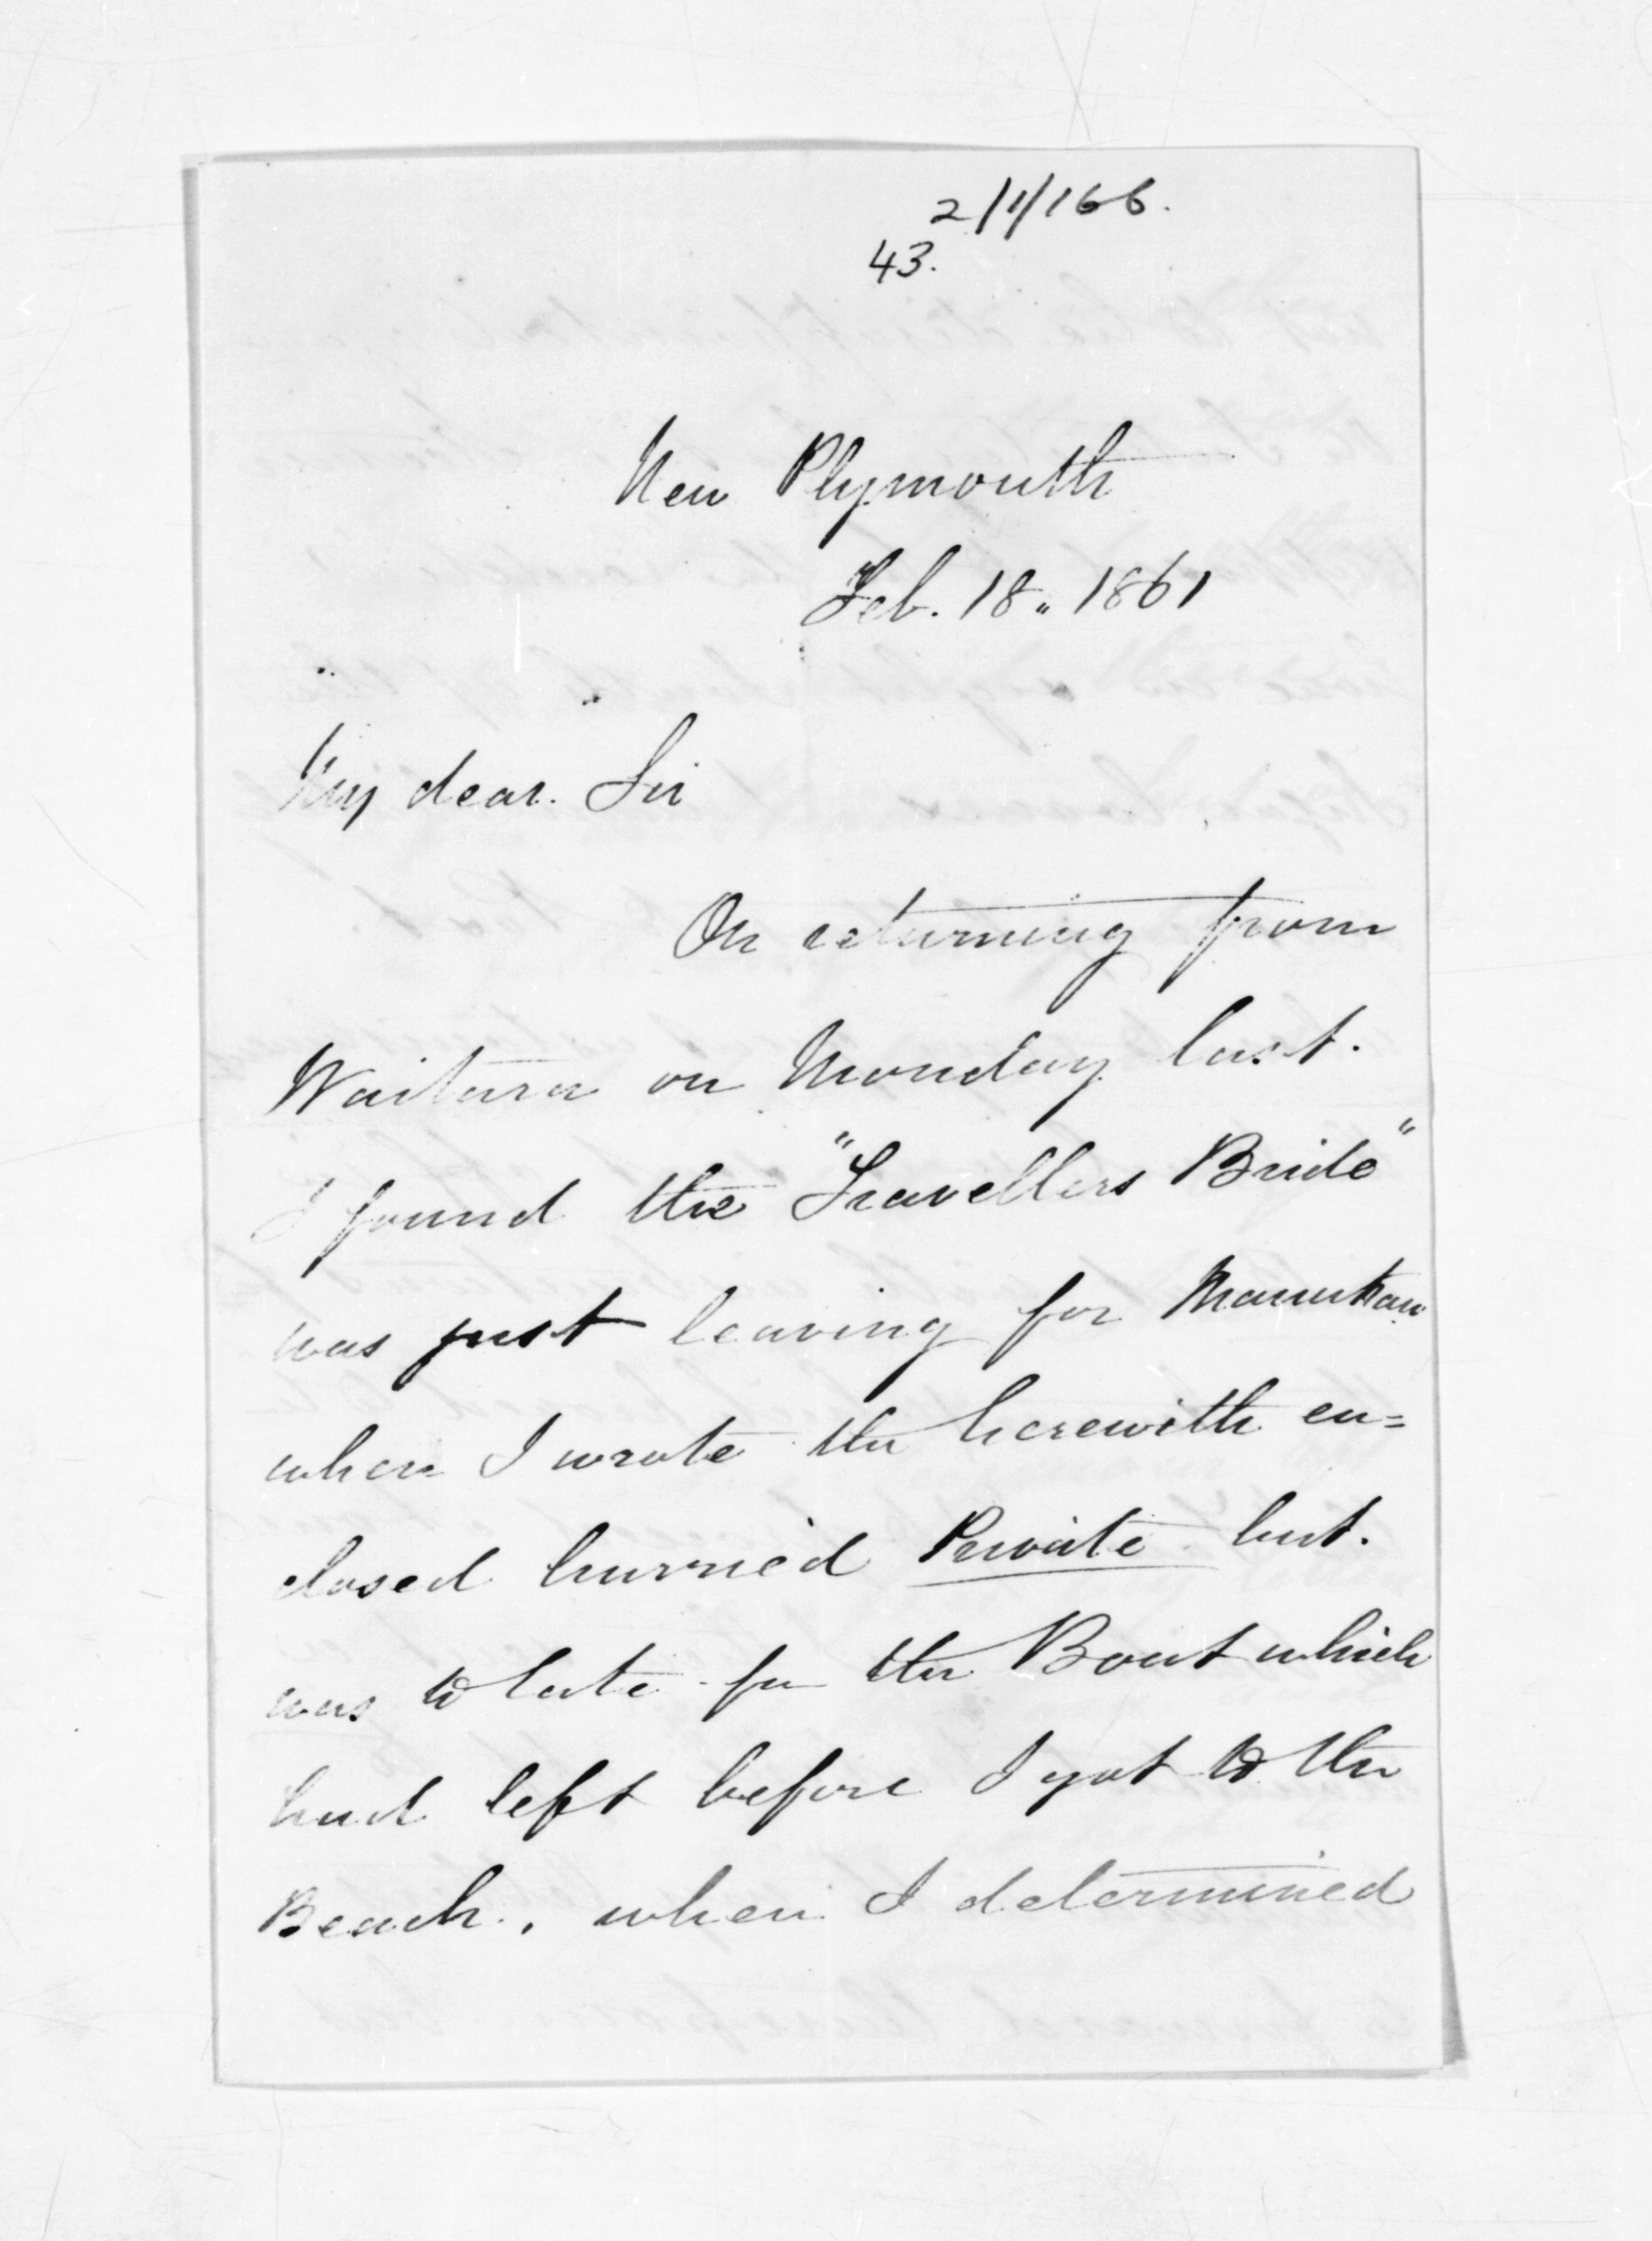 2/1/166.
43.
New Plymouth
Feb. 18 „ 1861
My dear Sir
On returning from
Waitara on Monday last.
I found the "Travellers Bride"
was just leaving for Manukau
when I wrote the herewith en=
closed hurried Private but.
was to late for the Boat which
had left before I got to the
Beach, when I determined